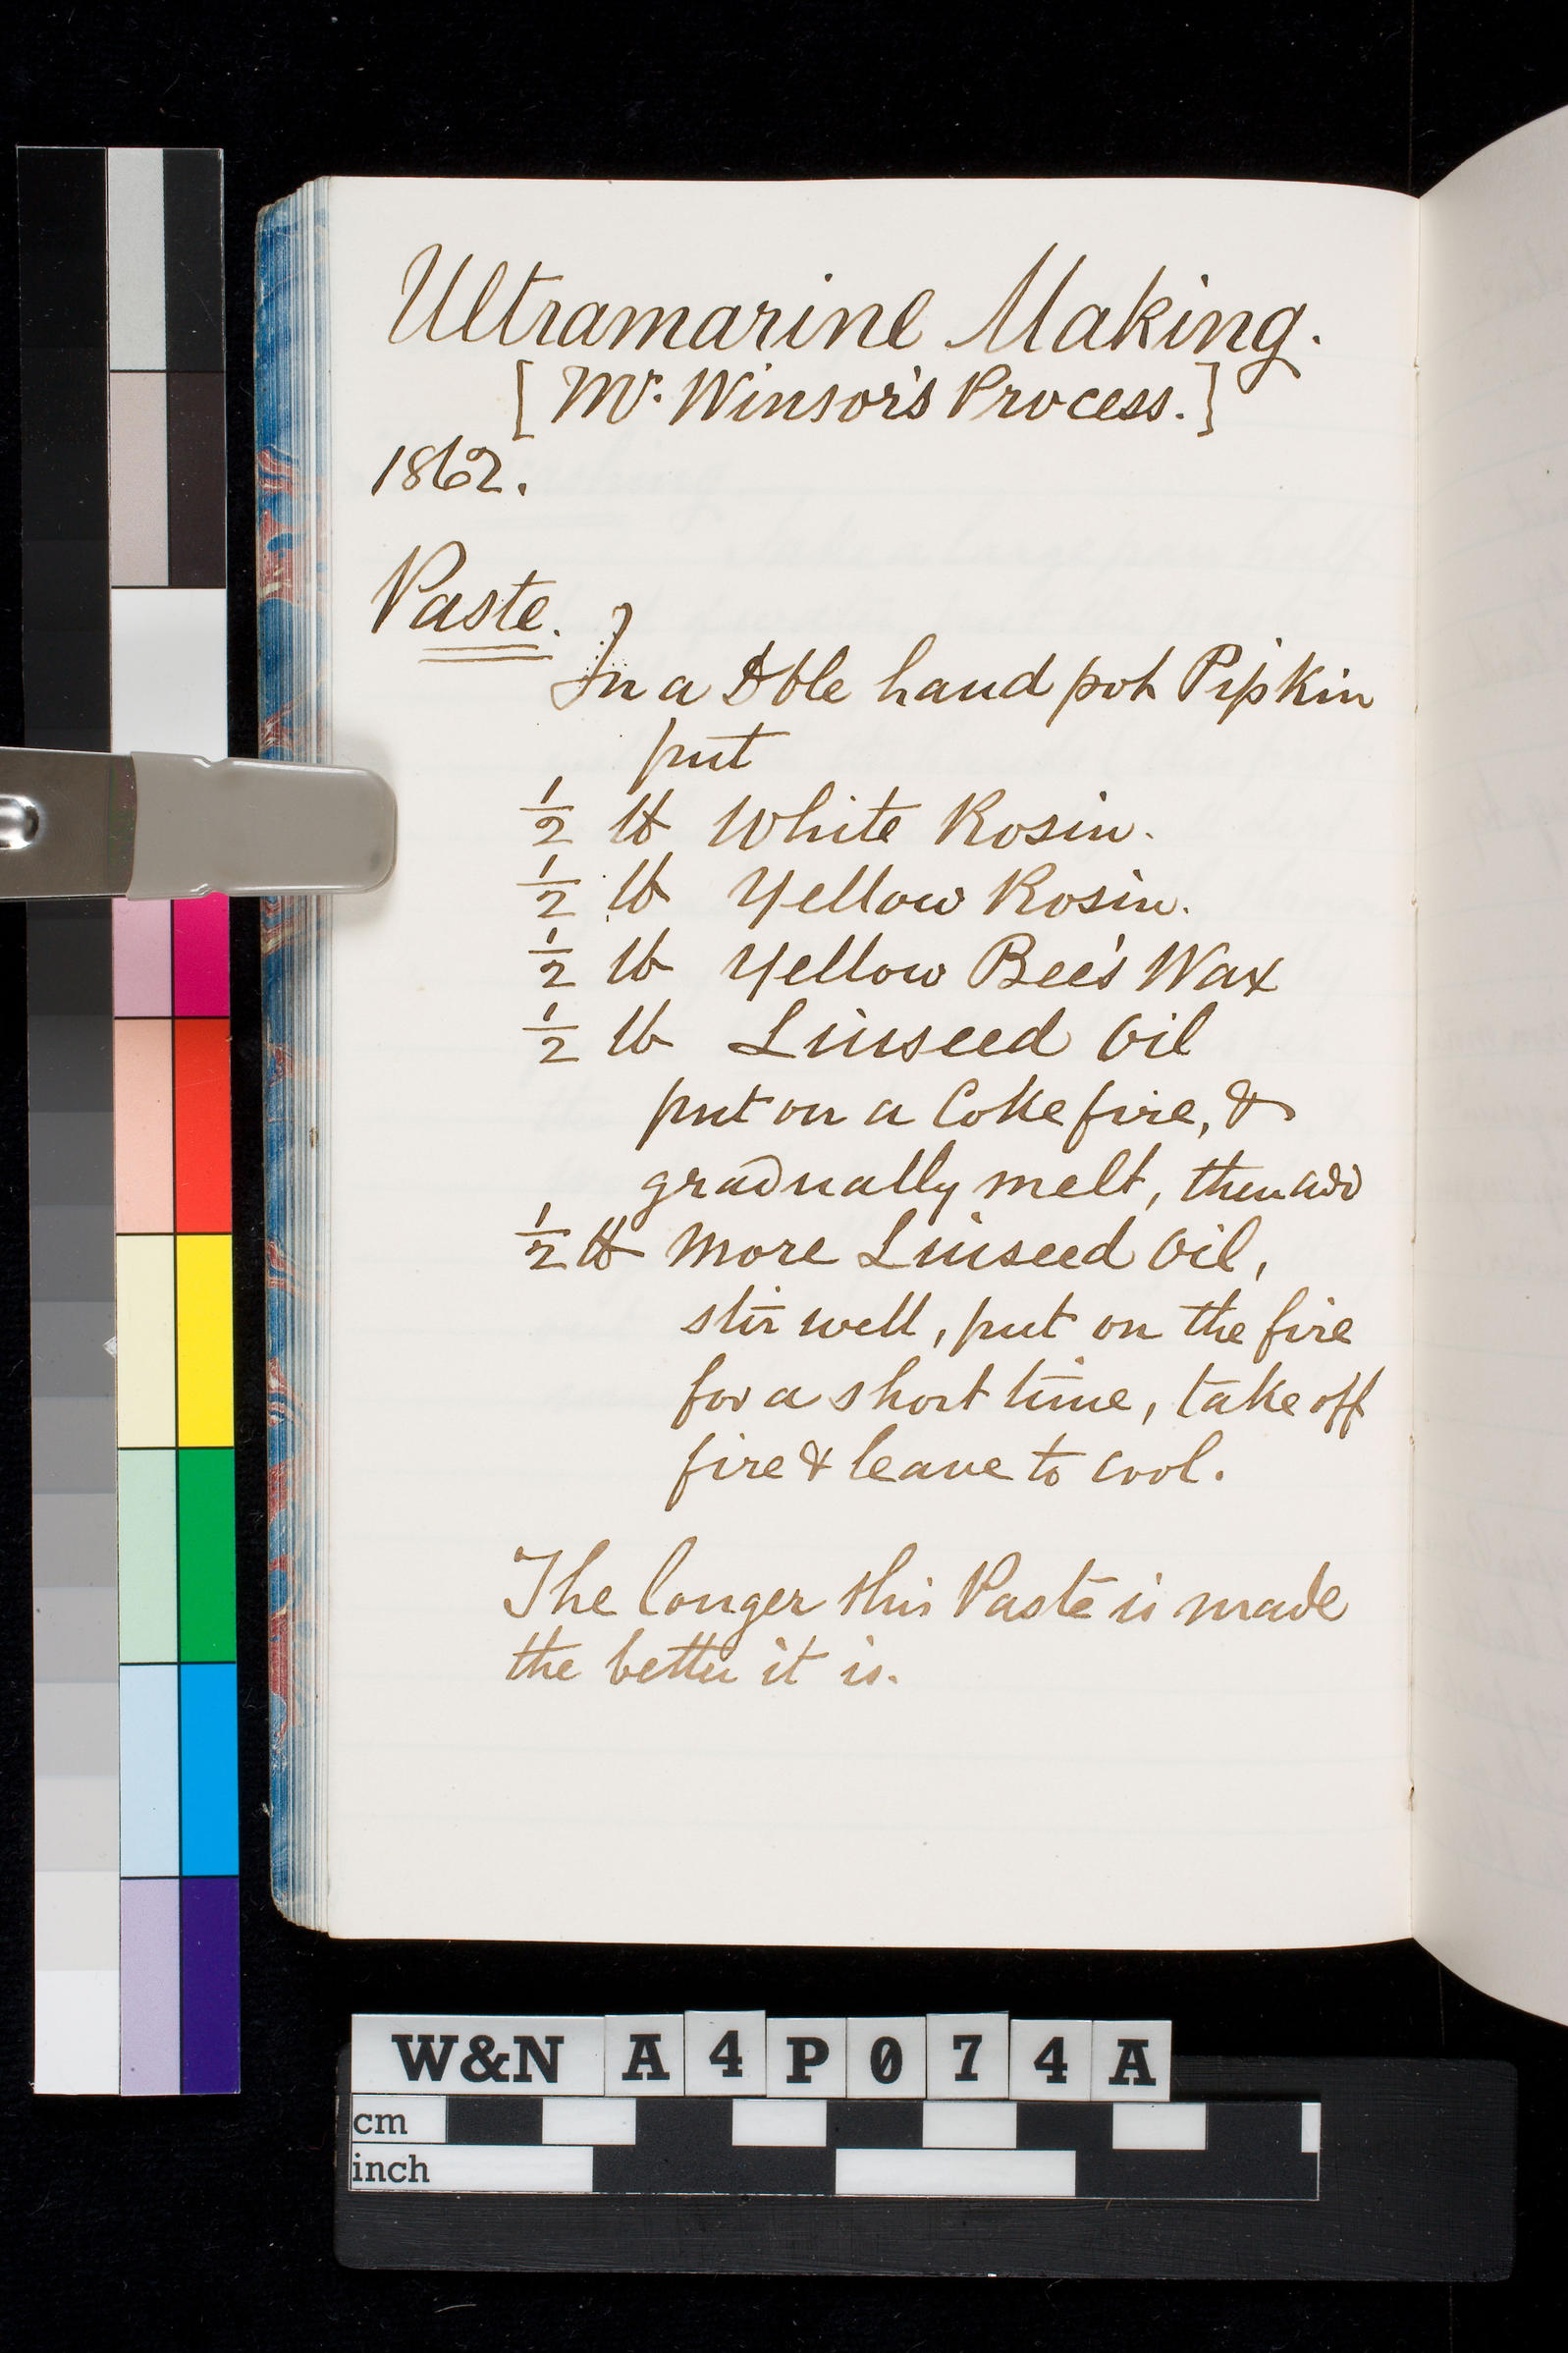 Ultramarine Making.
[Mr. Winsor's Process.]
1862.
Paste.
In a Dble hand pot Pipkin
put
1/2 lb White Rosin.
1/2 lb Yellow Rosin.
1/2 lb Yellow Bee's Wax
1/2 lb Linseed Oil
put on a Coke fire, &
gradually melt, then add
1/2 lb more Linseed Oil,
stir well, put on the fire
for a short time, take off
fire & leave to cool.
The longer this Paste is made
the better it is.
W&N A4P074A
cm
inch